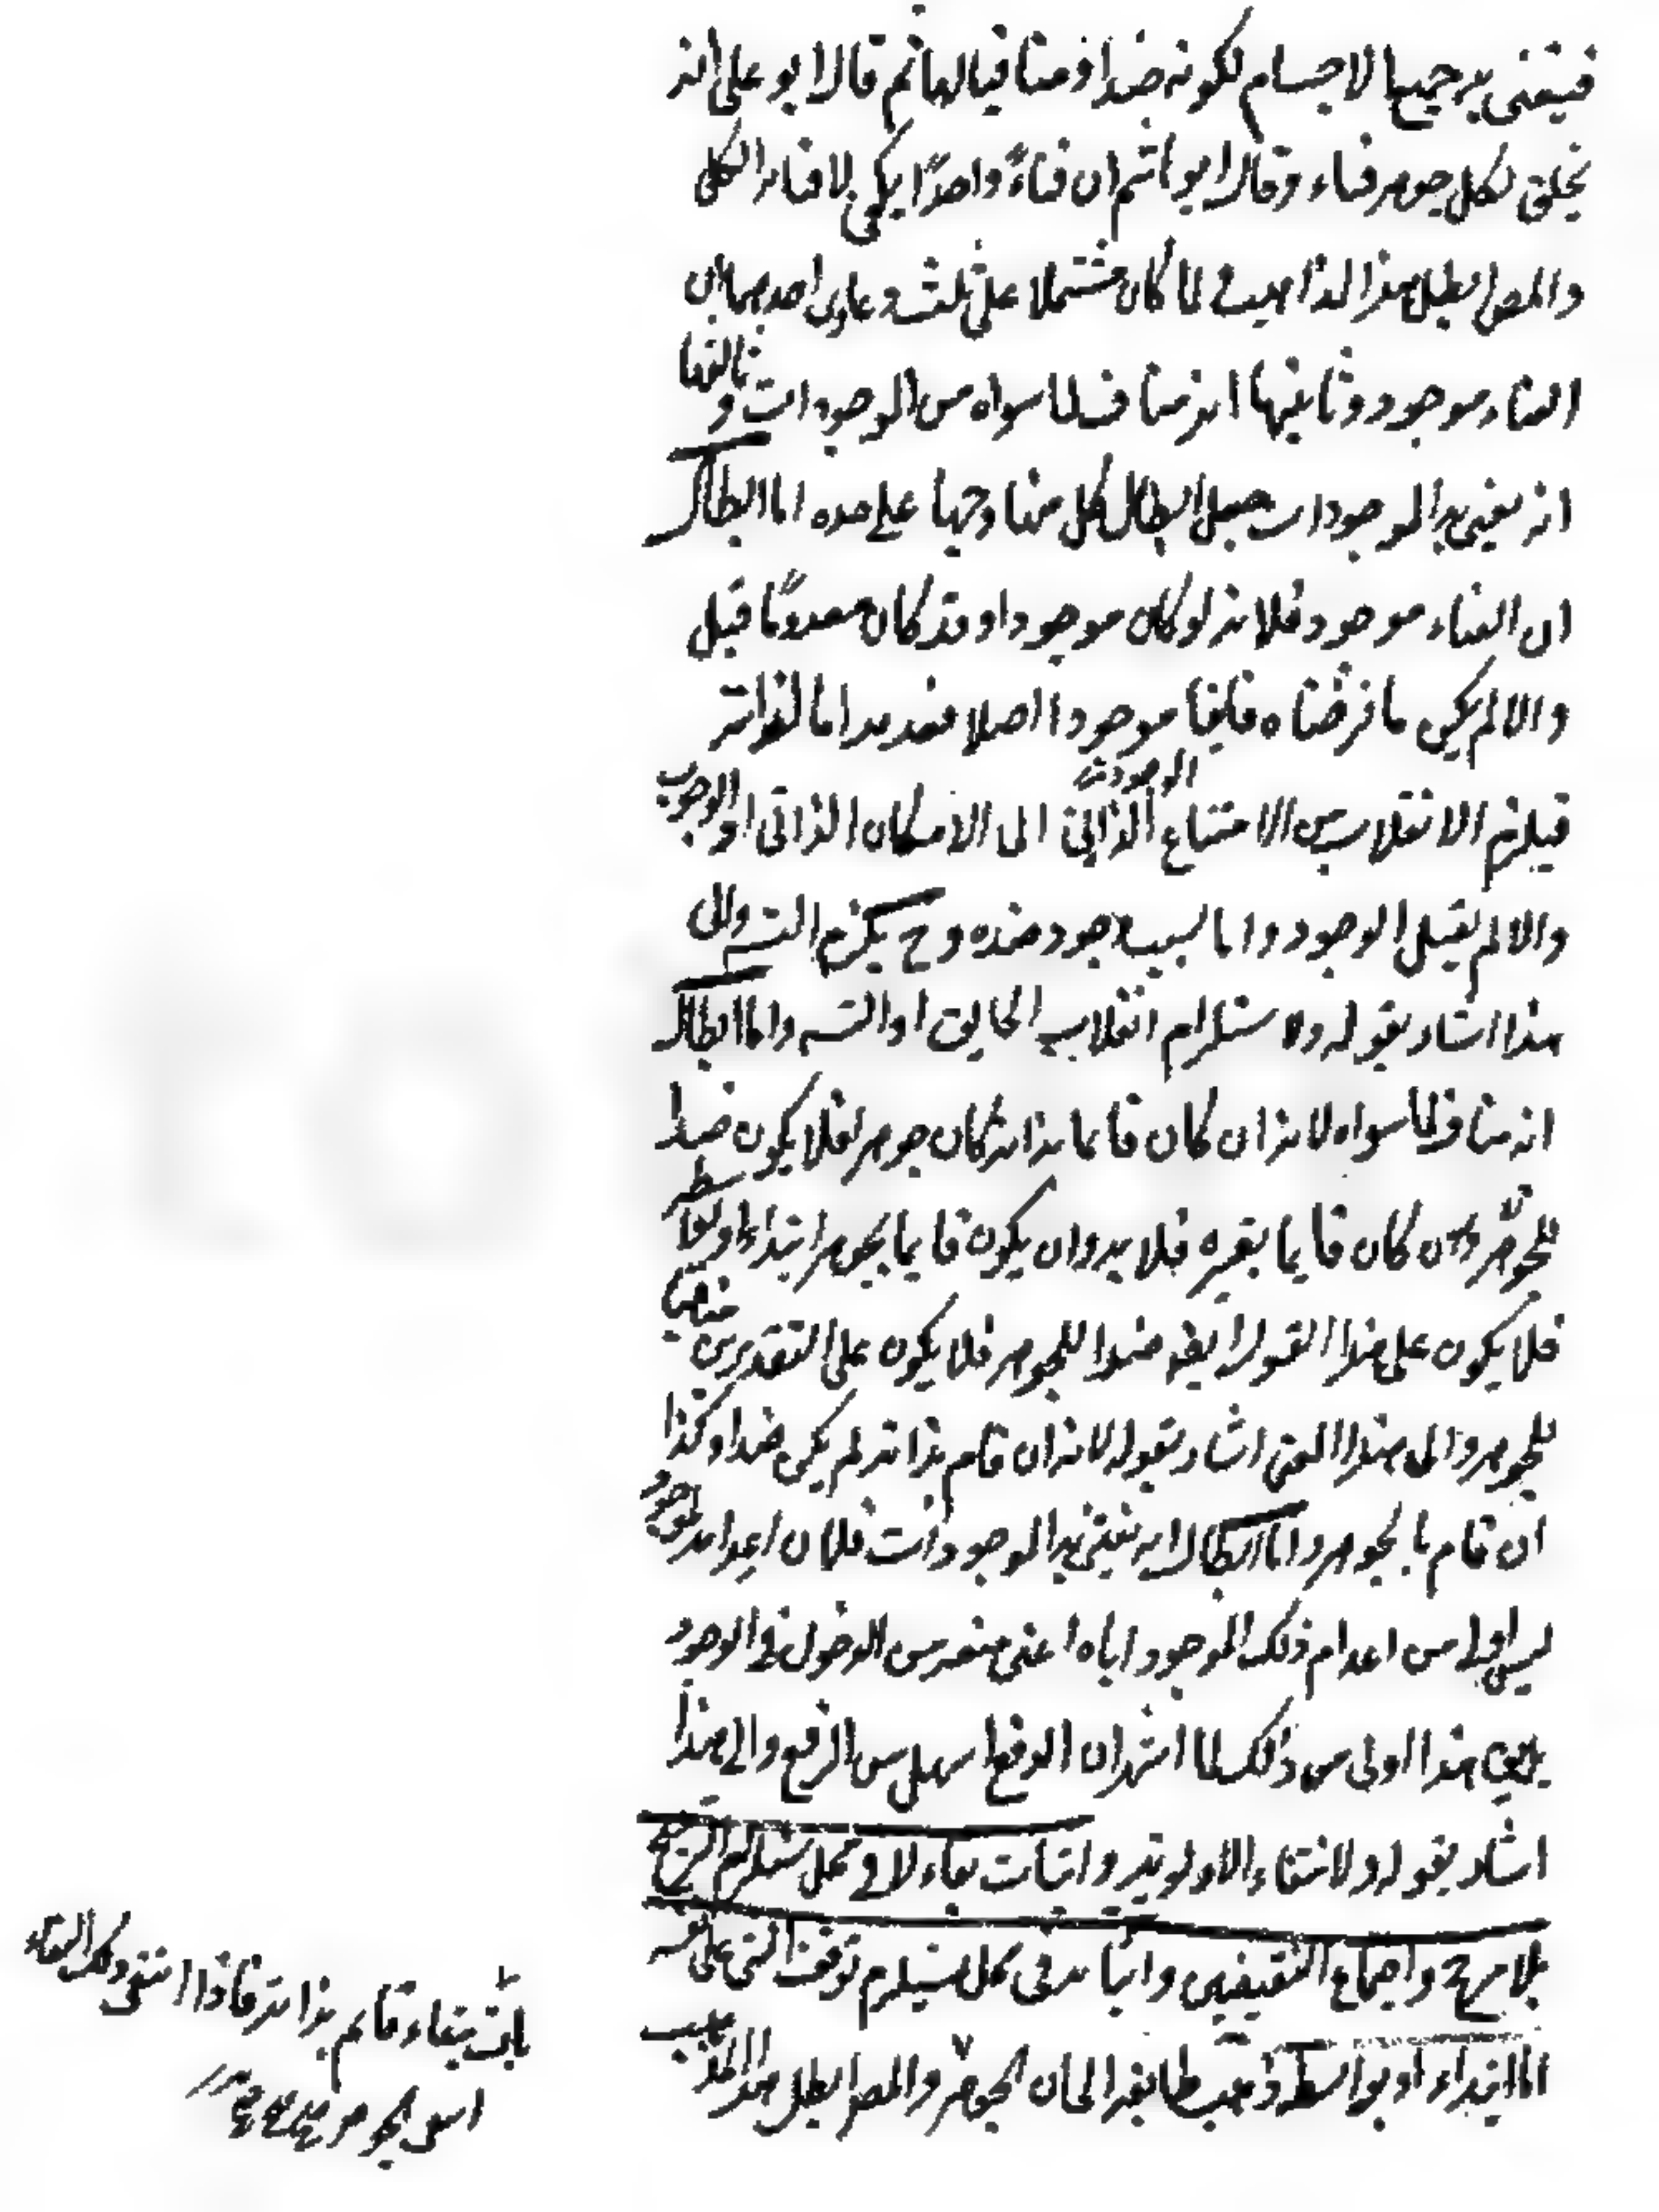 فيفنى به جميع الاجسام لكونه ضدا ومنافيا لها ثم قال ابو على انه
يخلق لكل جوهر فناء وقال ابو هاشم ان فناءً واحدًا يكفى لافناء الكل
والمص ابطل هذا المذاهب لما كان مشتملا على ثلث دعاوى احديهما ان
الفناء موجود وثانيها انه مناف لما سواه من الموجودات و ثالثها
انه يفنى به الموجودات جعل ابطال كل منها وجها على حده اما ابطال
ان الفناء موجود فلانه لو كان موجودا وقد كان معدومًا قبل
والا لم يكن ما فرضناه فانيا موجودا اصلا فعدمه اما لذاته
فيلزم الانقلاب من الامتناع الذاتى الى الامكان الذاتى او الوجوب
والا لم يقبل الوجود واما بسبب وجود ضده وح يلزم التسـ والى
هذا اشار بقوله ولاستلزام انقلاب الحقايق او التسـ واما ابطال
انه مناف لما سواه لانه ان كان قائما بذاته كان جوهرا فلا يكون ضدا
للجوهر وان كان قايما بغيره فلا بد وان يكون قايما بجوهر ابتداء او بواسطه
فلا يكون على هذا القول ايضا ضدا للجوهر فلا يكون على التقديرين منافيا
للجوهر والى هذا المعنى اشار بقوله لانه ان قام بذاته لم يكن ضدا وكذا
ان قام بالجوهر واما ابطال انه يفنى به الموجودات فلان اعدامه لموجود
ليس اولى من اعدام ذلك الموجود اياه اعنى منعه من الدخول فى الوجود
بل هذا اولى من ذلك لما اشتهر ان الدفع اسهل من الرفع والى هذا
اشار بقوله ولانتفاء الاولوية واثبات بقاء لا فى محل يستلزم الترجيح
بلا مرجح واجتماع النقيضين واثباته فى محل يستلزم توقف الشى على نفسه
اما ابتداء او بواسطه ذهب طايفة الى ان الجوهر والمص ابطل هذا المذهب
باق ببقاء قايم بذاته فاذا انتفى ذلك البقاء
انتفى الجوهر